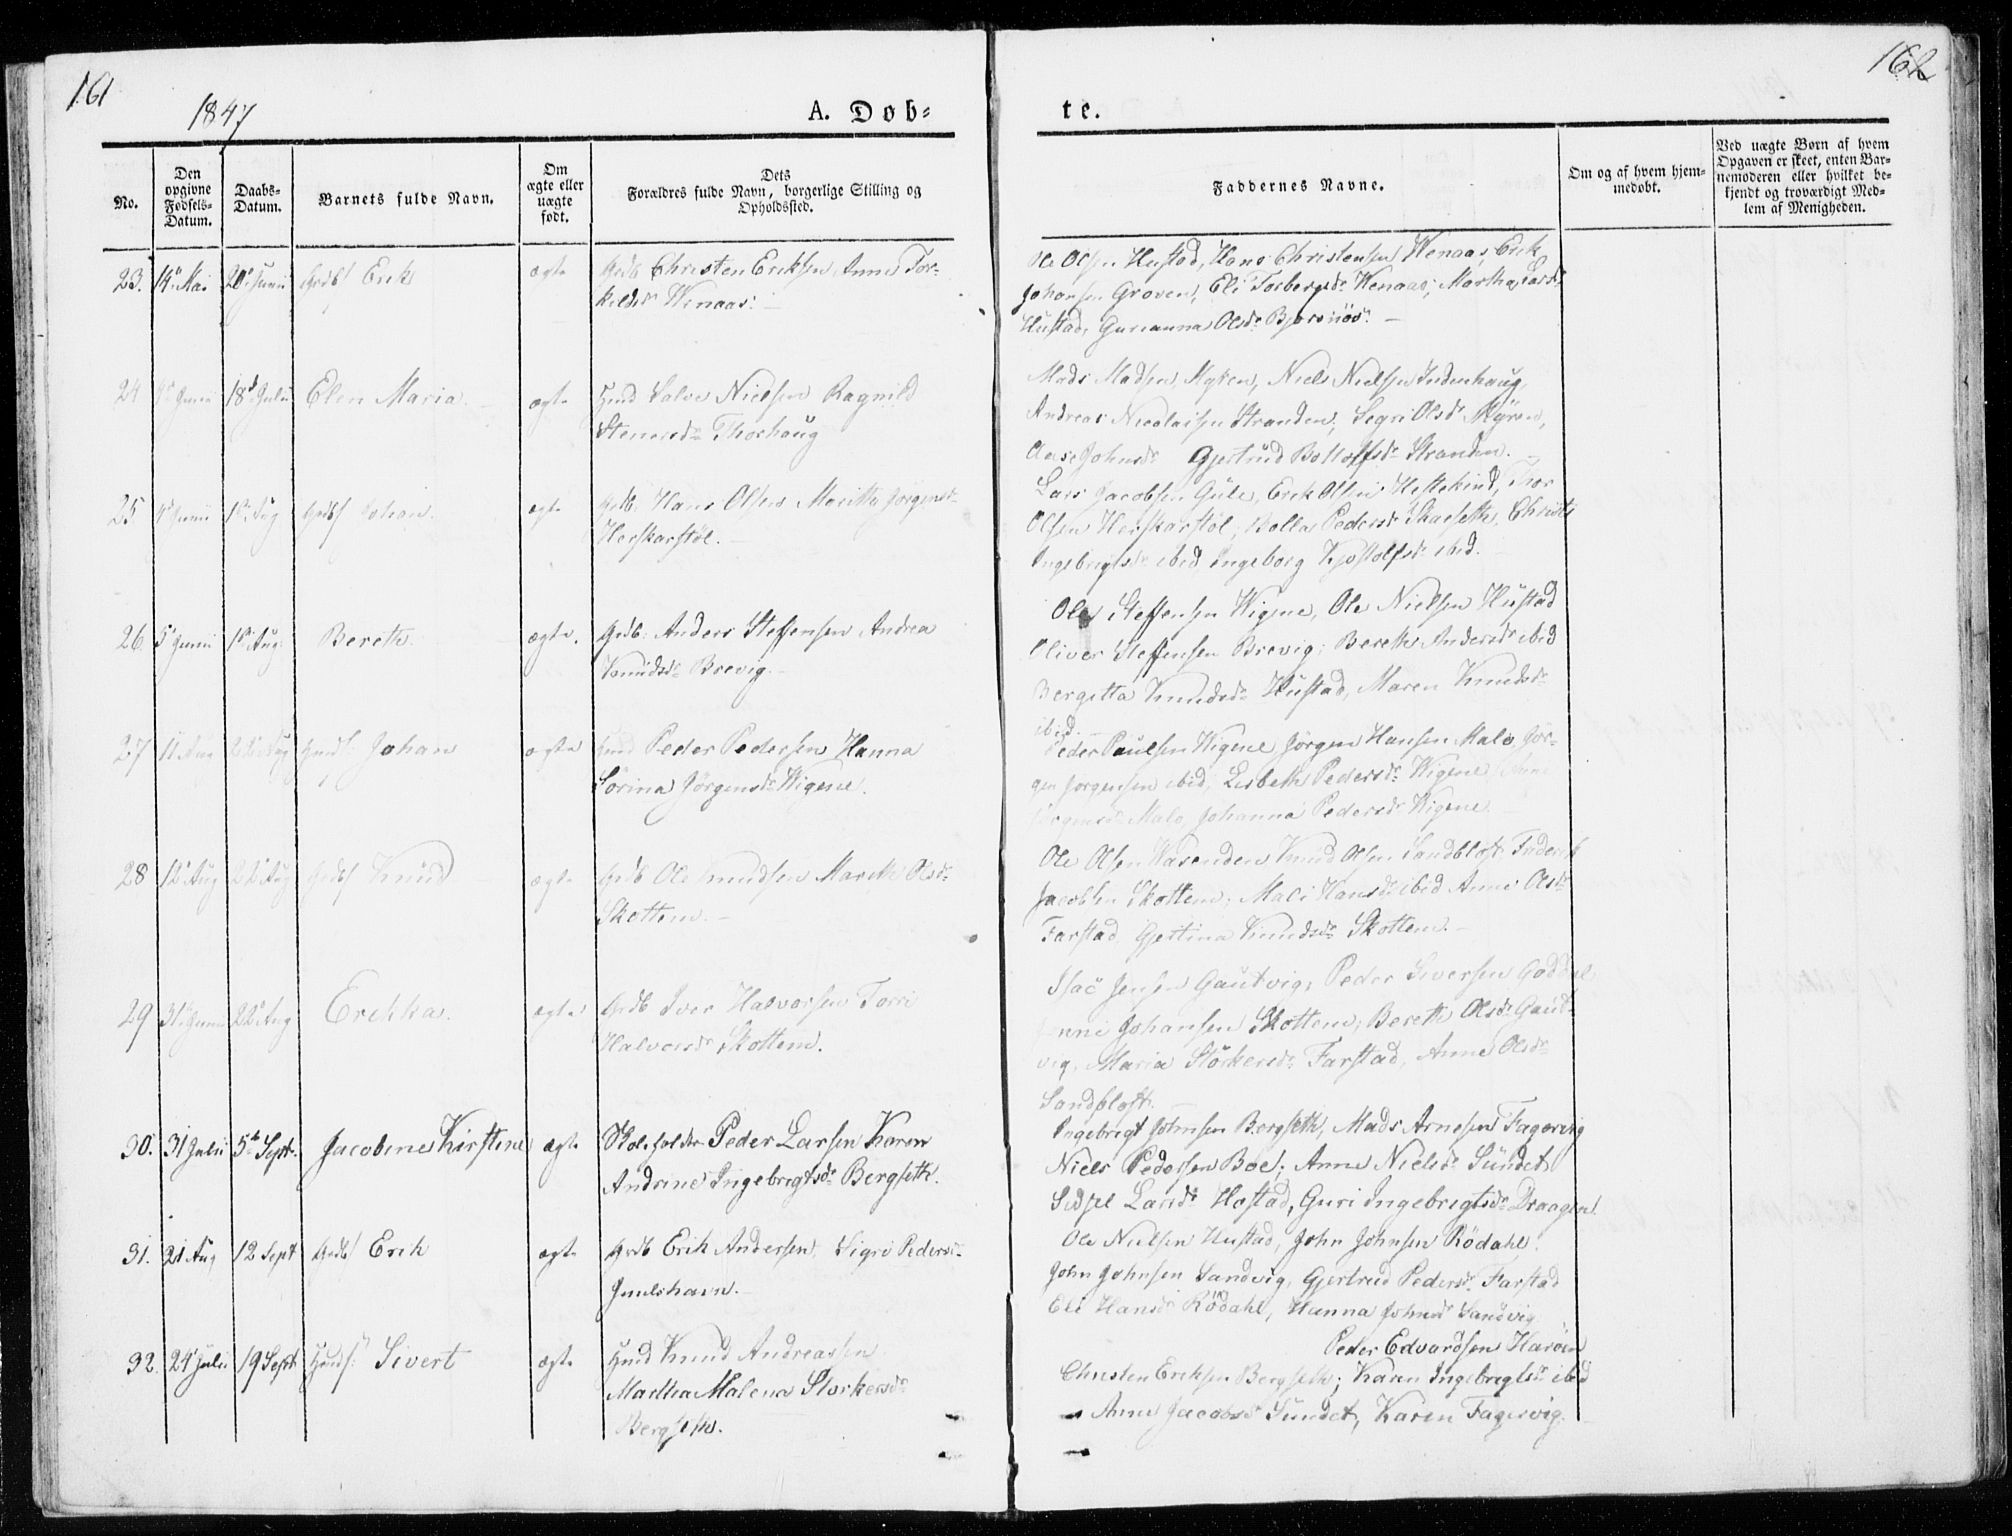 161
162
1847
A. Døb-
te.
No.
Den opgivne Fødsels-Datum.
Daabs-Datum.
Barnets fulde Navn.
Om ægte eller uægte født.
Dets Forældres fulde Navn, borgerlige Stilling og Opholdssted.
Faddernes Navne.
Om og af hvem hjemmedøbt.
Ved uægte Børn af hvem Opgaven er skeet, enten Barnemoderen eller hvilket bekjendt og troværdigt Medlem af Menigheden.
23. 14de Mai 20de Junii Grdbs Erik ægte Grdb Christen Eriksen Anne Tor-
kildsdr Wenaas.
Ole Olsen Hustad, Hans Christensen Wenaas, Erik
Johansen Groven, Eli Torbergsdr Wenaas, Martha Larsdr
Hustad, Gurianna Olsdr Bjørsnøs.
24 4de Junii 18de Julii Elen Maria. ægte Hmd Salve Nielsen Ragnild
Stenersdr Thorhaug
Mads Madsen Myren, Niels Nielsen Indenhaug,
Andreas Nicolaisen Stranden, Segri Olsdr Myren,
Aase Johnsdr Gjertrud Bottolfsdr Stranden.
25 4de Junii 1ste Aug Grdbs Johan. ægte Grdb. Hans Olsen Maritta Jørgensdr
Herskarstøl.
Lars Jacobsen Gule, Erik Olsen Hestekind, Thor
Olsen Herskarstøl, Kolla Pedersdr Skarseth, Christi
Ingebrigtsdr ibid, Ingeborg Kjøstolfsdr ibid.
26. 5 Junii 1ste Aug. Bereth. ægte. Grdb. Anders Steffensen Andrea
Knudsdr Brevig.
Ole Steffensen Wigene, Ole Nielsen Hustad
Oliver Steffensen Brevig; Bereth Andersdr ibid
Bergitta Knudsdr Hustad, Maren Knudsdr
ibid.
27 11 Aug Hmds Johan ægte Hmd Peder Pedersen Hanna
Sørina Jørgensdr Wigene.
Peder Paulsen Wigene Jørgen Hansen Malo, Jør-
gen Jørgensen ibid, Lisbeth Pedersdr Wigene Anne
Jørgensdr Malo, Johanna Pedersdr Wigene.
28 12te Aug 22de Aug Grdbs Knud ægte Grdb Ole Knudsen Mareth Olsdr
Skottem.
Ole Olsen Wasenden Knud Olsen Sandbloft, Frederik
Jacobsen Skottem, Mali Hansdr ibid Anne Olsdr
Farstad Gjertina Knudsdr Skottem.
29 31te Junii 22de Aug Erekka. ægte Grdb Iver Halvorsen Torri
Halvorsdr Skottem.
Isac Jensen Gautvig, Peder Siversen Goddal
Johansen Skottem; Bereth Olsdr Gaut-
vig, Maria Størkersdr Farstad, Anne Olsdr
Sandbloft.
30. 31 Julii 5te Sept. Jacobine Kirstine ægte Skoleholder Peder Larsen Karen
Andrine Ingebrigtsdr Bergseth.
Ingebrigt Johnsen Bergseth, Mads Arnesen Fagervig
Niels Pedersen Boe; Anne Nielsdr Sundet
Sidsel Larsdr Hostad, Guri Ingebrigtsdr Draagen
31. 21 Aug 12 Sept Grdbs Erik ægte Grdb Erik Andersen, Sigri Pedersdr
Juulshavn.
Ole Nielsen Hustad, John Johnsen Rödahl.
John Johnsen Sandvig, Gjertrud Pedersdr Farstad
Eli Hansdr Rödahl, Hanna Johnsdr Sandvig.
32. 24de Julii 19 Sept Hmds: Sivert ægte Hmd Knud Andreassen
Madtha Malena Storkersdr
Bergseth.
Peder Edvardsen Harøen
Christen Eriksen Bergseth; Karen Ingebrigtsdr ibid
Anne Jacobsdr Sundet, Karen Fagervig.